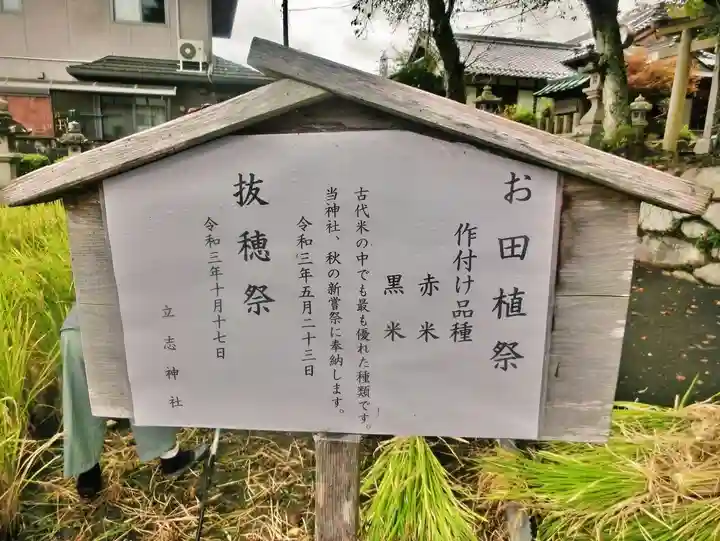 お田植祭
作付け品種
赤米
黒米
古代米の中でも最も優れた種類です。
当神社、秋の新嘗祭に奉納します。
令和三年五月二十三日
抜穂祭
令和三年十月十七日
立志神社